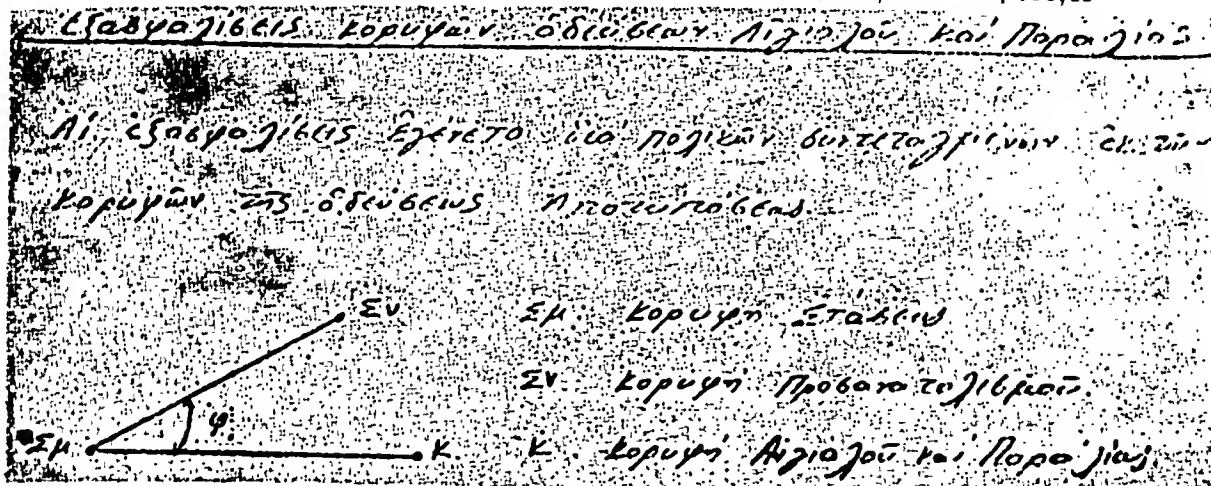 Ἐξασφαλίσεις κορυφῶν ὁδεύσεων Αἰγιαλοῦ καί Παραλίας
Αἱ ἐξασφαλίσεις ἐγένετο διά πολικῶν συντεταγμένων ἐκ τῶν
κορυφῶν τῆς ὁδεύσεως Ἀποτυπώσεως.
Σν
Σμ κορυφή Στάσεως
Σν κορυφή Προσανατολισμοῦ.
φ
Σμ Κ Κ κορυφή Αἰγιαλοῦ καί Παραλίας.